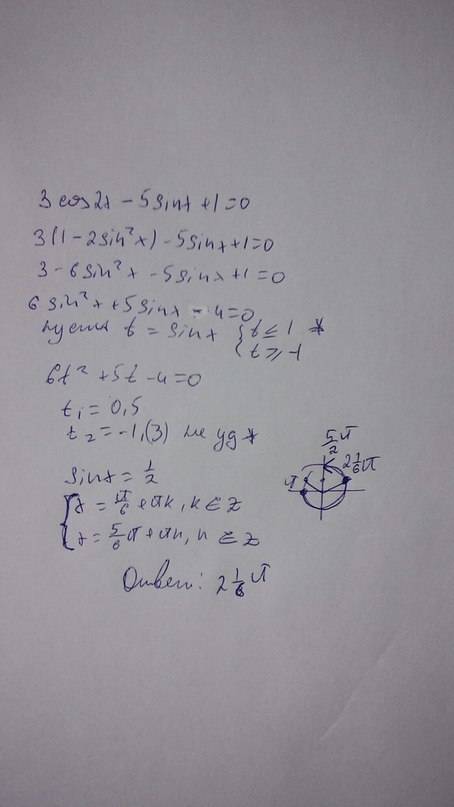 3 cos2x - 5 sinx + 1 = 0
3(1 - 2sin²x) - 5sinx + 1 = 0
3 - 6sin²x - 5sinx + 1 = 0
6 sin²x + 5sinx - 4 = 0
пусть t = sinx { t ≤ 1 *
{ t ≥ -1
6t² + 5t - 4 = 0
t₁ = 0,5
t₂ = -1,(3) не уд *
sinx = 1/2
{ x = π/6 + πk, k ∈ Z
{ x = 5/6 π + πn, n ∈ Z
5/2 π
2 1/6 π
π
Ответ: 2 1/6 π